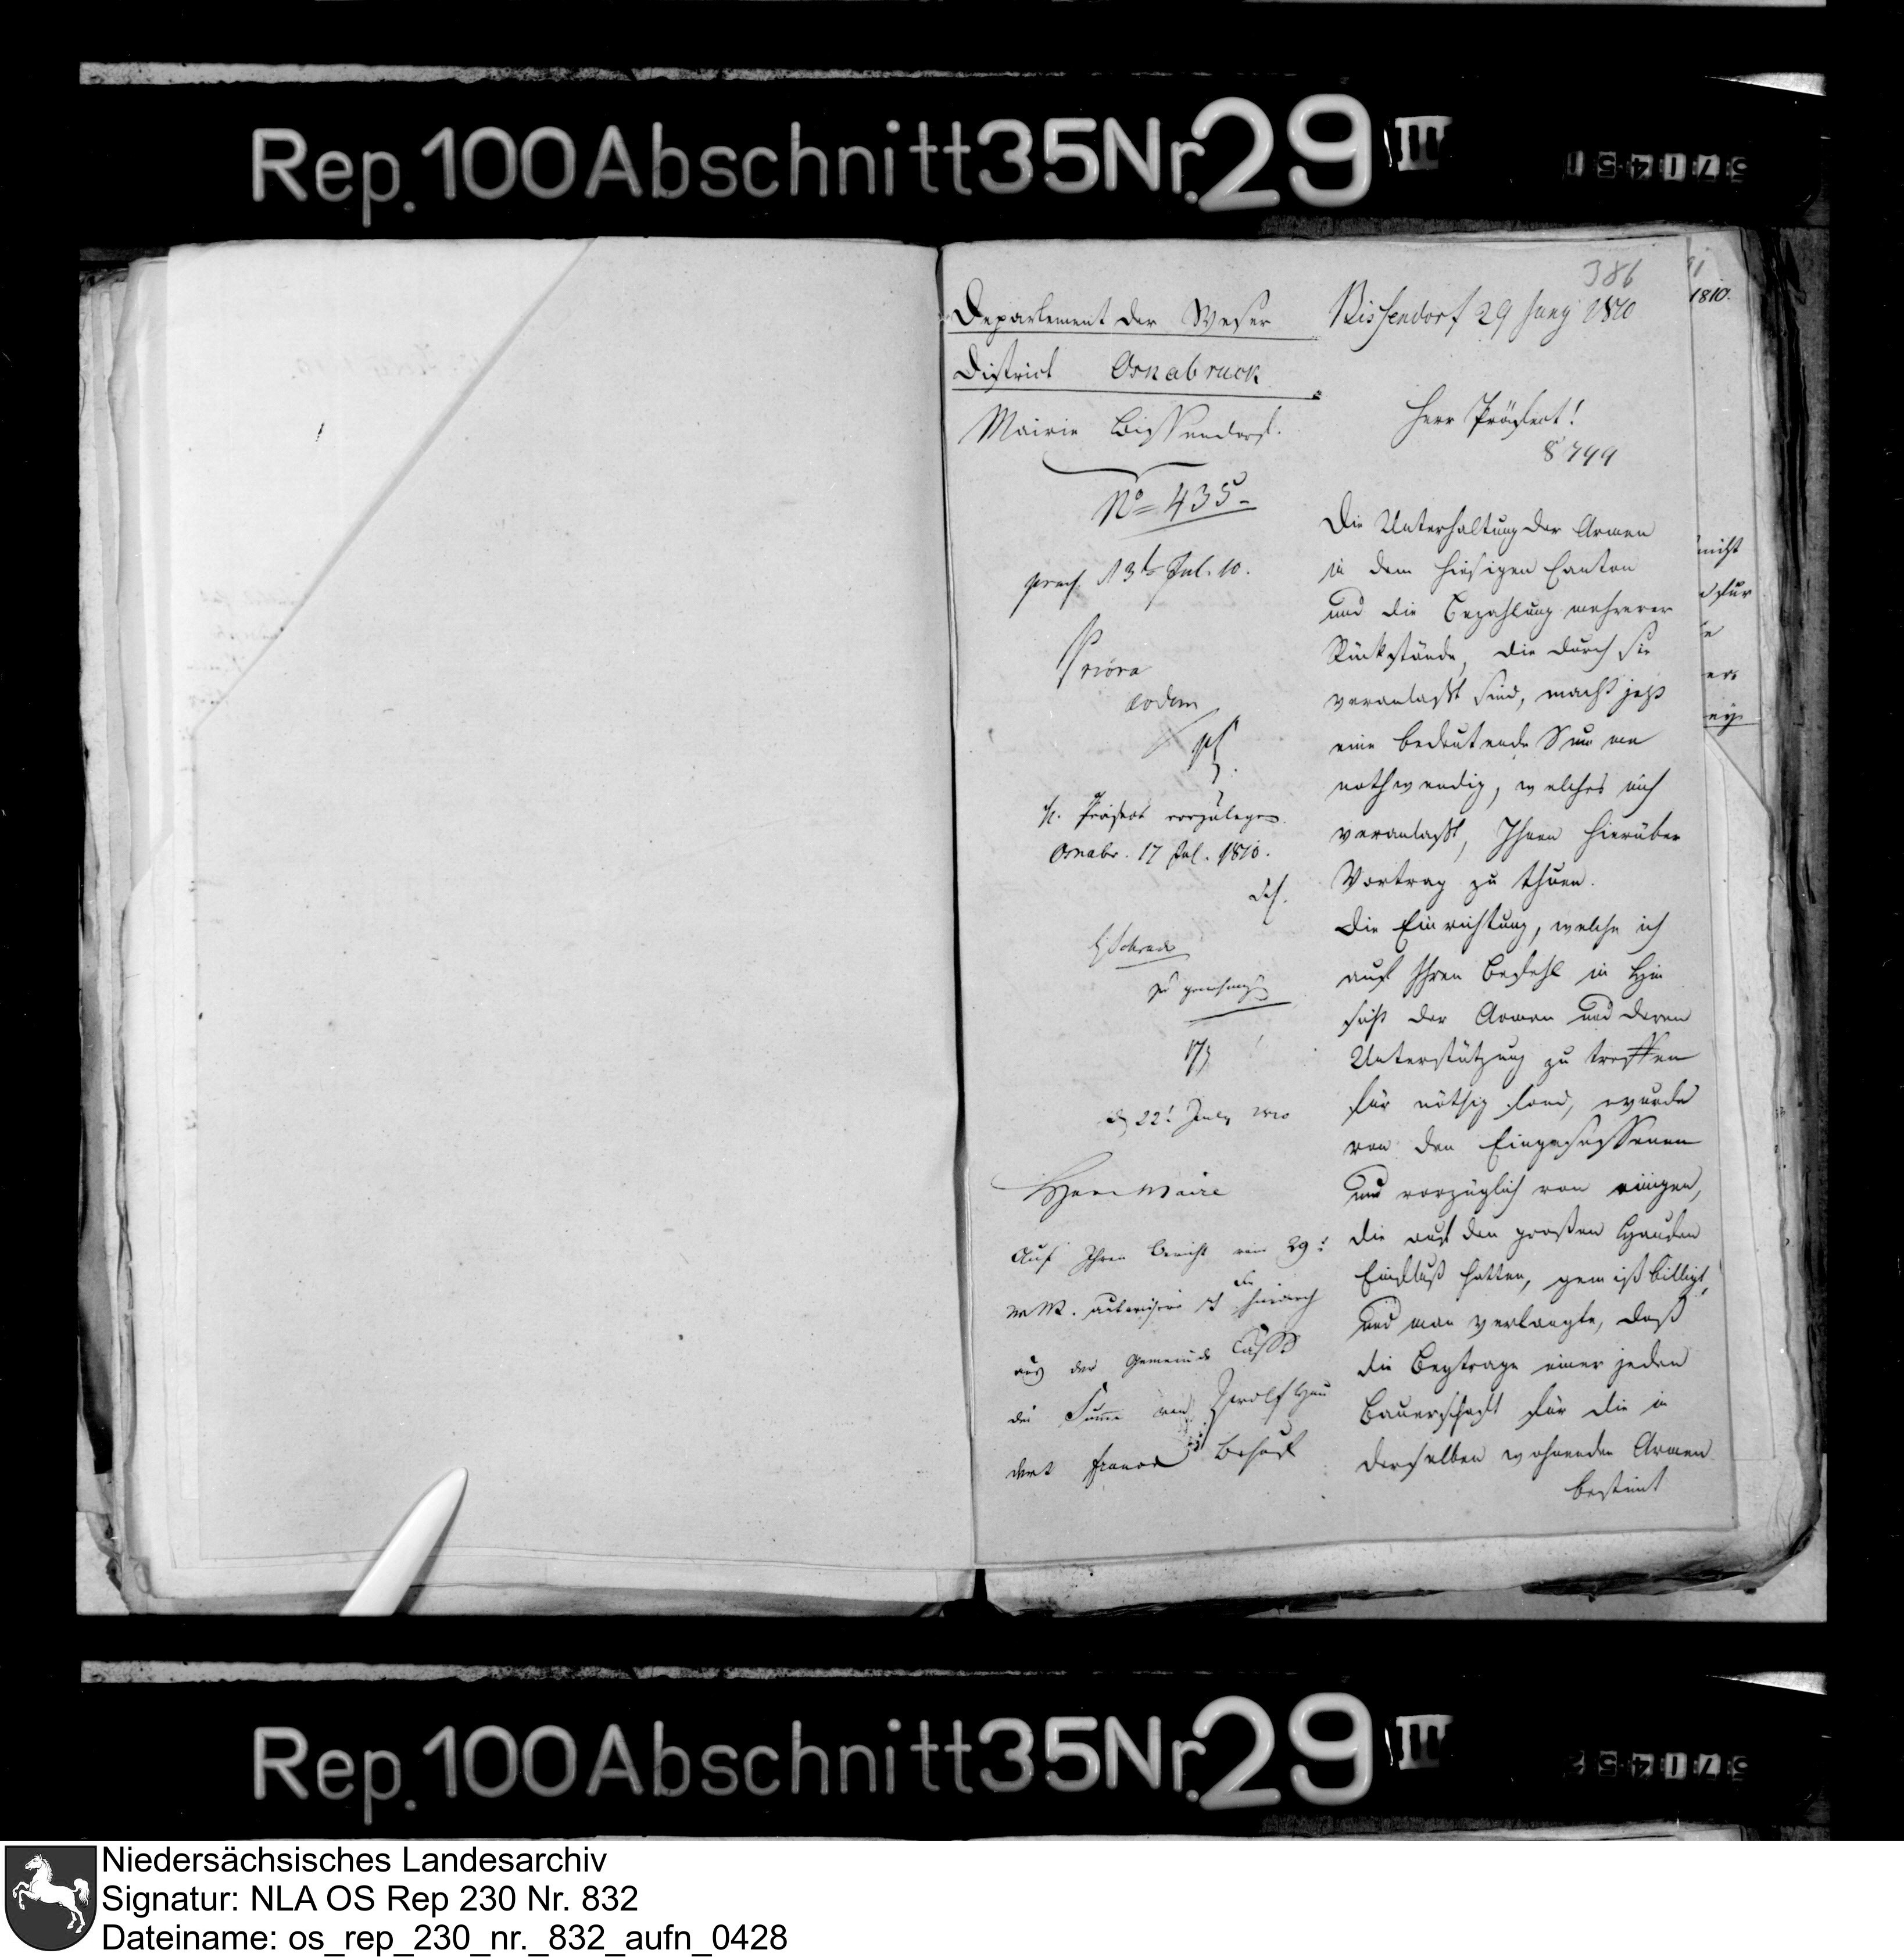 Rep. 100 Abschnitt 35 Nr. 29 III
57145 1
386
Departement der Weser
District Osnabruck
Mairie Bissendorf.
No 435
praes. 13t Jul. 10.
Priora
eodem
H. Präfect vorzulegen.
Osnabr. 17 Jul. 1810.
zu
17/7
d 22t July 1810
Herr Maire
Auf Ihren Bericht vom 29t
v. M. autorisire ich Sie hierdurch
aus der Gemeinde Casse
die Summe von Zwölf Hun
dert Franca Behuf
Bissendorf 29 Juny 1810
Herr Präfect!
8799
Die Unterhaltung der Armen
in dem hiesigen Canton
und die Bezahlung mehrerer
Rückstände, die durch sie
veranlaßt sind, macht jetzt
eine bedeutende Summe
nothwendig, welches mich
veranlaßt, Ihnen hierüber
Vortrag zu thuen.
Die Einrichtung, welche ich
auf Ihren Befehl in Hin
sicht der Armen und deren
Unterstützung zu treffen
für nöthig fand, wurde
von den Eingesessenen
und vorzüglich von einigen,
die auf den großen Haufen
Einfluß hatten, gemißbilligt,
und man verlangte, daß
die Beytrage einer jeden
Bauerschaft für die in
derselben wohnenden Armen
bestimt
1810.
nicht
Rep. 100 Abschnitt 35 Nr. 29 III
57145 2
Niedersächsisches Landesarchiv
Signatur: NLA OS Rep 230 Nr. 832
Dateiname: os_rep_230_nr._832_aufn_0428